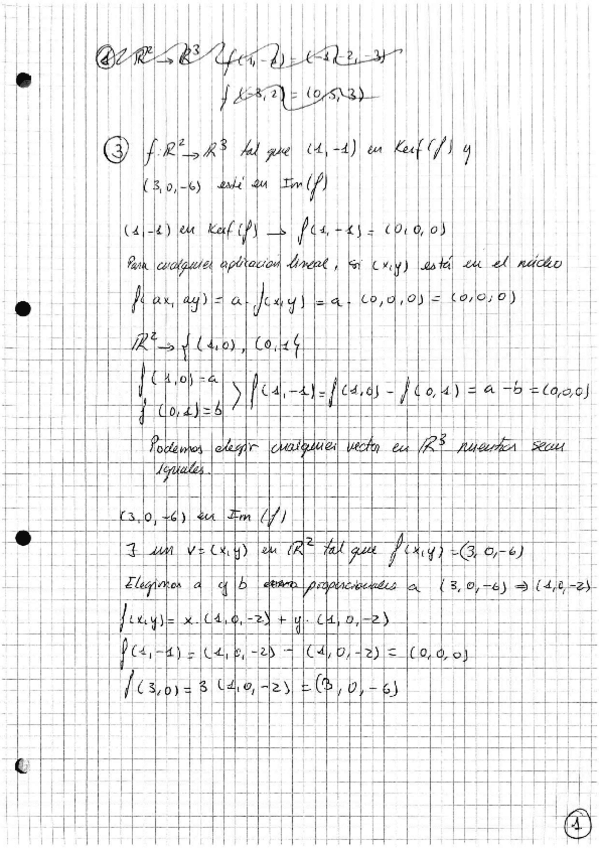 1 R² → R³ f(1,-1) = (-1,-2,-3)
f(-3,2) = (0,5,3)
3 f: R² → R³ tal que (1,-1) en Kerf(f) y
(3,0,-6) esté en Im(f)
(1,-1) en Kerf(f) → f(1,-1) = (0,0,0)
Para cualquier aplicación lineal, si (x,y) está en el núcleo
f(ax, ay) = a · f(x,y) = a · (0,0,0) = (0,0,0)
R² → {(1,0), (0,1)}
f(1,0) = a
f(0,1) = b > f(1,-1) = f(1,0) - f(0,1) = a - b = (0,0,0)
Podemos elegir cualquier vector en R³ mientras sean
iguales.
(3,0,-6) en Im(f)
∃ un v = (x,y) en R² tal que f(x,y) = (3,0,-6)
Elegimos a y b proporcionales a (3,0,-6) ⇒ (1,0,-2)
f(x,y) = x · (1,0,-2) + y · (1,0,-2)
f(1,-1) = (1,0,-2) - (1,0,-2) = (0,0,0)
f(3,0) = 3 (1,0,-2) = (3,0,-6)
1